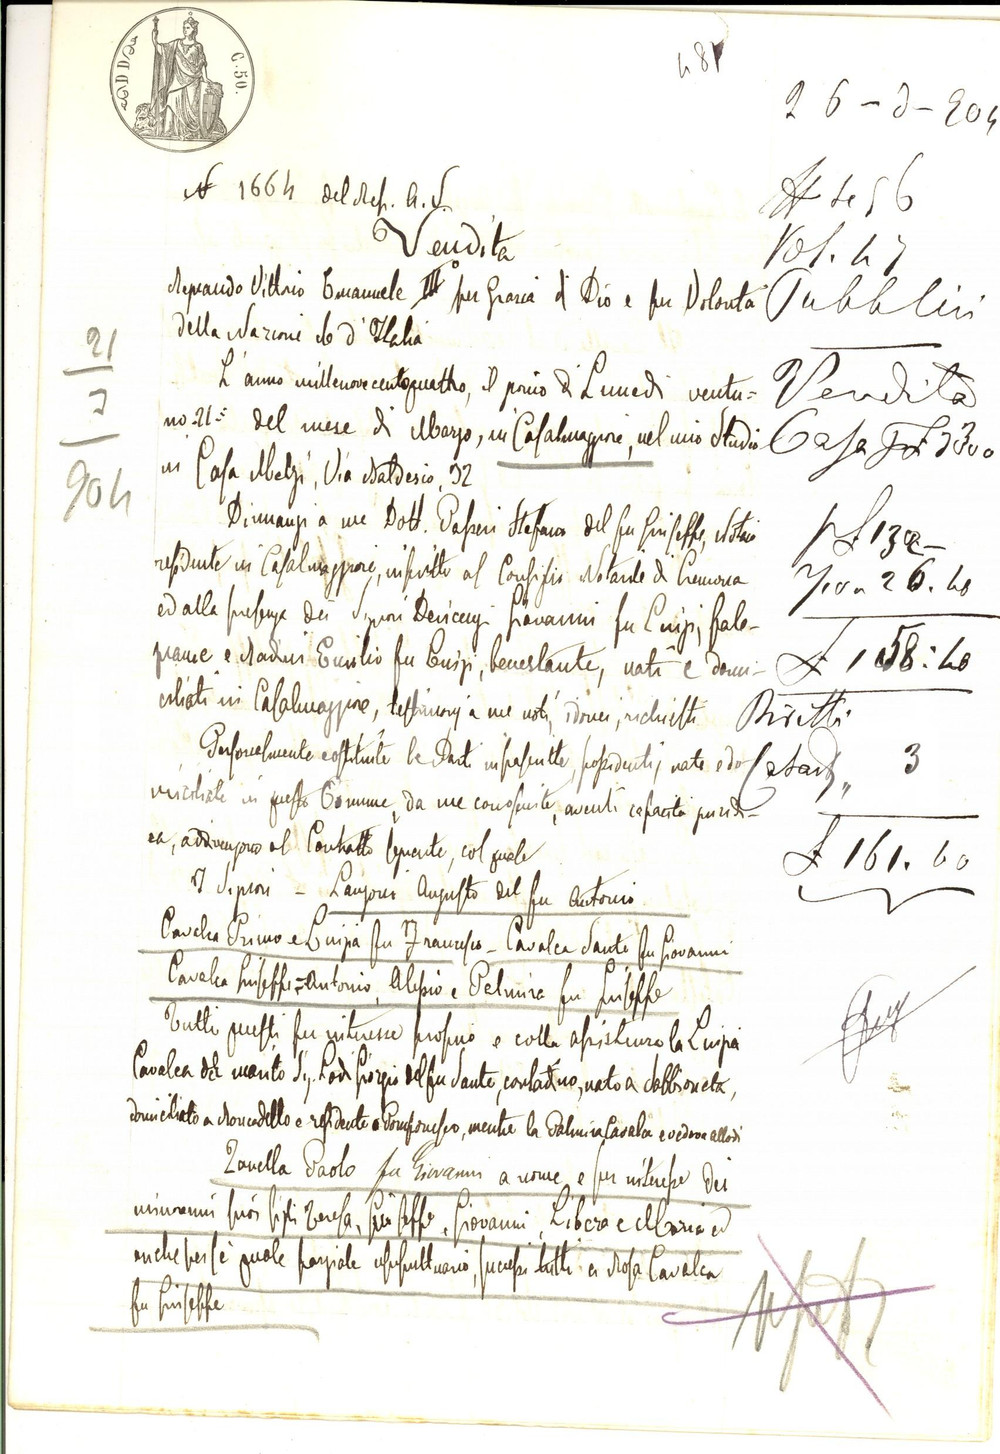 C. 50.
481
26-3-904
N 1664 del Rep. A. S.
Vendita
Regnando Vittorio Emanuele III° per Grazia di Dio e per Volontà
della Nazione Re d'Italia
L'anno millenovecentoquattro, il giorno di Lunedì ventu=
no 21= del mese di Marzo, in Casalmaggiore, nel mio Studio
in Casa Melzi, Via Baldesio, 32
Dinnanzi a me Dott. Passeri Stefano del fu Giuseppe, Notaio
residente in Casalmaggiore, inscritto al Consiglio Notarile di Cremona
ed alla presenza dei Signori Giovanni fu Luigi, fale-
gname e Emilio fu Luigi, benestante, nati e domi-
ciliati in Casalmaggiore, testimonj a me noti, idonei, richiesti
Personalmente costituite le Parti infrascritte, possidenti, nate e do
miciliate in questo Comune, da me conosciute, aventi capacità giuridi-
ca, addivengono al Contratto seguente, col quale
I Signori - Augusto del fu Antonio
Cavalca Primo e Luigia fu Francesco - Cavalca Sante fu Giovanni
Cavalca Giuseppe = Antonio, Alessio e Palmira fu Giuseppe
Tutti questi per interesse proprio e colla assistenza la Luigia
Cavalca del marito Sig. Lodi Giorgio del fu Sante, contadino, nato a Sabbioneta,
domiciliato a Roncadello e residente a Pomponesco, mentre la Palmira Cavalca è vedova
Zanella Paolo fu Giovanni a nome e per interesse dei
minorenni suoi figli Teresa, Giuseppe, Giovanni, Libera e Maria ed
anche per sè quale parziale usufruttuario, successi tutti a Rosa Cavalca
fu Giuseppe
21
3
904
Vol. 47
Pubblici
Vendita
Casa £ 3300
£ 132-
26.40
£ 158.40
Diritti
Catast. " 3
£ 161.40